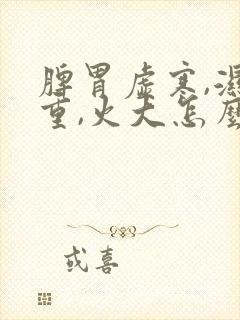 脾胃虛寒,濕
重,火大怎麼
或喜